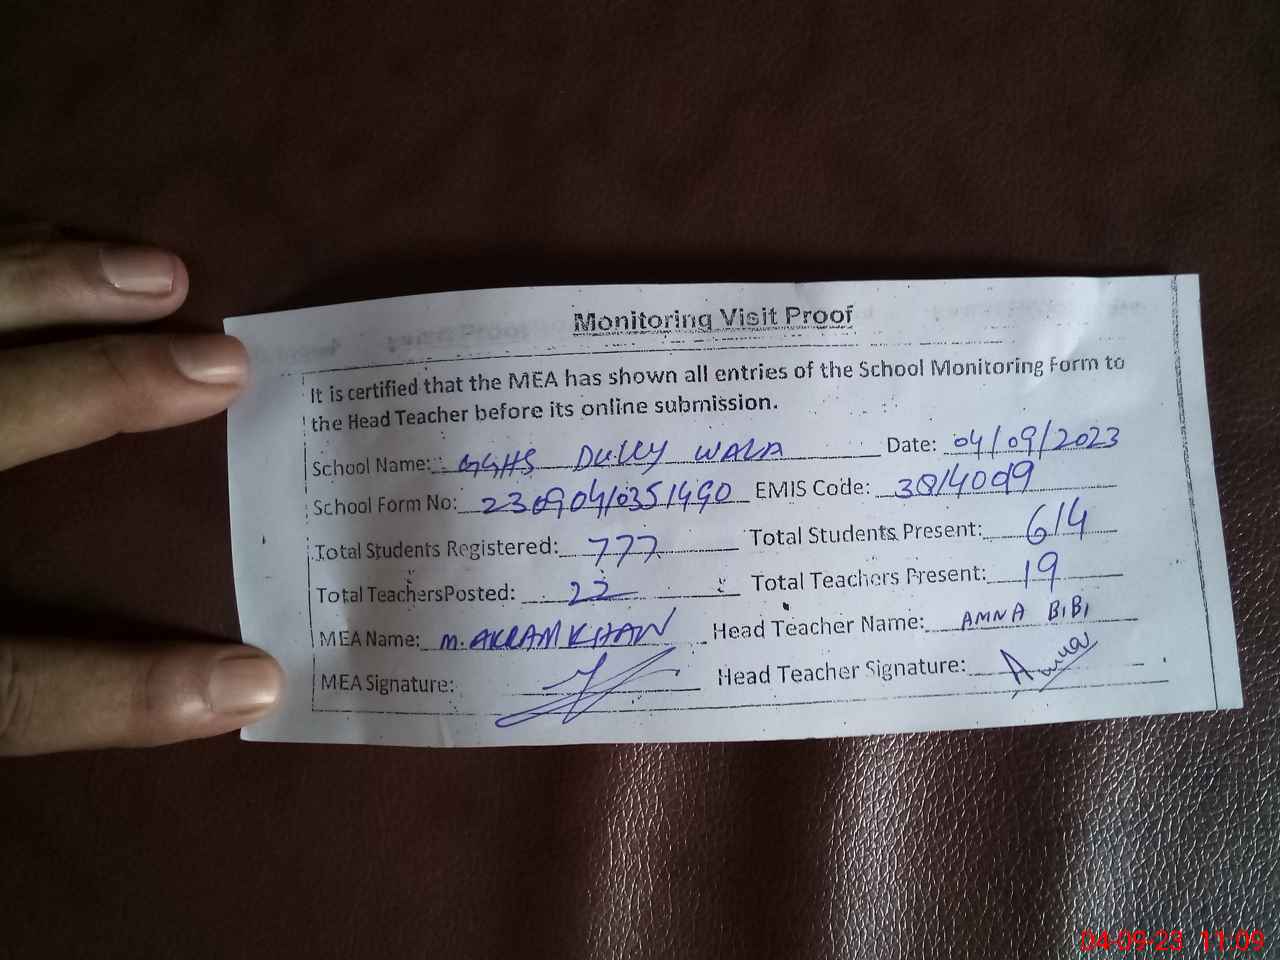 Monitoring Visit Proof
It is certified that the MEA has shown all entries of the School Monitoring Form to
the Head Teacher before its online submission.
School Name: GGHS DULLY WALA Date: 04/09/2023
School Form No: 23090410351490 EMIS Code: 38/40009
Total Students Registered: 777 Total Students Present: 614
Total TeachersPosted: 22 Total Teachers Present: 19
MEA Name: M. AKRAM KHAN Head Teacher Name: AMNA BIBI
MEA Signature: Head Teacher Signature: Amna
04-09-23 11:09